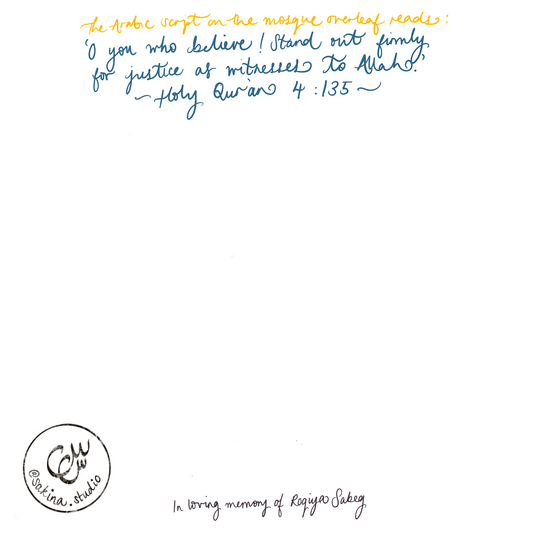 The Arabic script on the mosque overleaf reads:
'O you who believe! Stand out firmly
for justice as witnesses to Allah.'
~Holy Qur'an 4:135~
@sakina.studio
In loving memory of Roqiya Sabeg